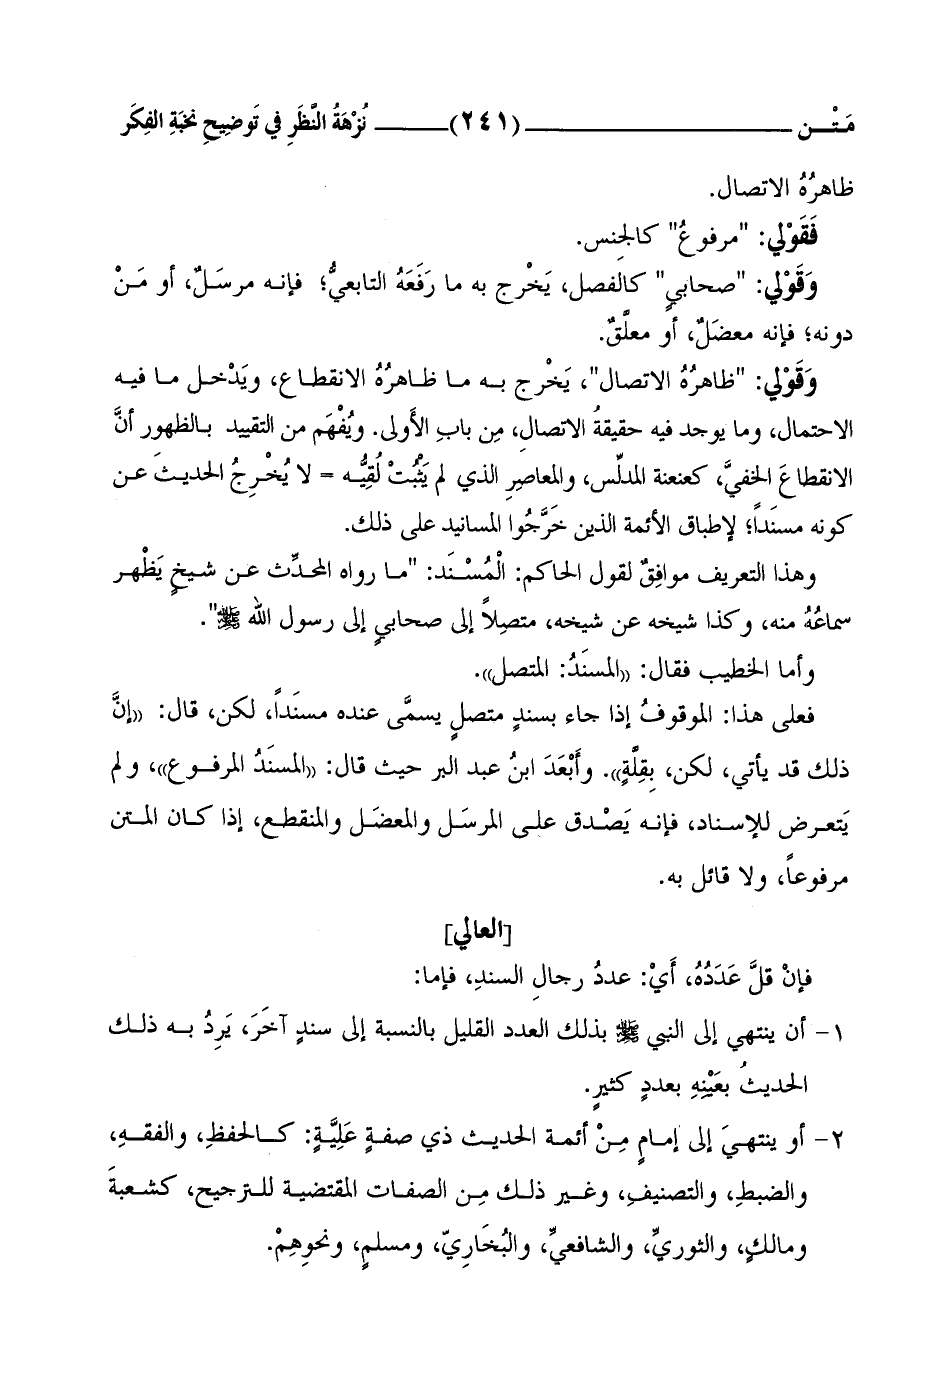 مَتْـــن ـــــــــــــــــــــ (٢٤١) ـــــــــ نُزْهَةُ النَّظَرِ في تَوضِيحِ نخبَةِ الفِكَر
ظاهرُهُ الاتصال.
فَقَوْلي: "مرفوعُ" كالجِنس.
وَقَوْلي: "صحابيٍ" كالفصل، يَخْرج به ما رَفَعَهُ التابعيُّ؛ فإنه مرسَلٌ، أو مَنْ
دونه؛ فإنه معضَلٌ، أو معلَّقٌ.
وَقَوْلي: "ظاهرُهُ الاتصال"، يَخْرج به ما ظاهرُهُ الانقطاع، ويَدْخل ما فيه
الاحتمال، وما يوجد فيه حقيقةُ الاتصال، مِن بابِ الأَولى. ويُفْهَم من التقييد بالظهور أنَّ
الانقطاعَ الخفيَّ، كعنعنة المدلِّس، والمعاصِرِ الذي لم يَثْبُتْ لُقِيُّه = لا يُخْرِجُ الحديثَ عن
كونه مسنَداً؛ لإطباق الأئمة الذين خَرَّجُوا المسانيد على ذلك.
وهذا التعريف موافِقٌ لقول الحاكم: الْمُسْنَد: "ما رواه المحدِّث عن شيخٍ يَظْهر
سماعُهُ منه، وكذا شيخه عن شيخه، متصِلاً إلى صحابيٍ إلى رسول الله ﷺ".
وأما الخطيب فقال: «المسنَدُ: المتصل».
فعلى هذا: الموقوفُ إذا جاء بسندٍ متصلٍ يسمَّى عنده مسنَداً، لكن، قال: «إنَّ
ذلك قد يأتي، لكن، بِقِلَّةٍ». وأَبْعَدَ ابنُ عبد البر حيث قال: «المسنَدُ المرفوع»، ولم
يَتعرض للإسناد، فإنه يَصْدق على المرسَل والمعضَل والمنقطع، إذا كان المتن
مرفوعاً، ولا قائل به.
[العالي]
فإنْ قلَّ عَدَدُهُ، أَيْ: عددُ رجالِ السندِ، فإما:
١- أن ينتهي إلى النبي ﷺ بذلك العدد القليل بالنسبة إلى سندٍ آخَرَ، يَرِدُ به ذلك
الحديثُ بعَيْنِهِ بعددٍ كثيرٍ.
٢- أو ينتهيَ إلى إمامٍ مِنْ أئمة الحديث ذي صفةٍ عَلِيَّةٍ: كالحفظِ، والفقهِ،
والضبطِ، والتصنيفِ، وغير ذلك مِن الصفات المقتضية للترجيح، كشعبةَ
ومالكٍ، والثوريِّ، والشافعيِّ، والبُخَارِيّ، ومسلمٍ، ونحوِهِمْ.